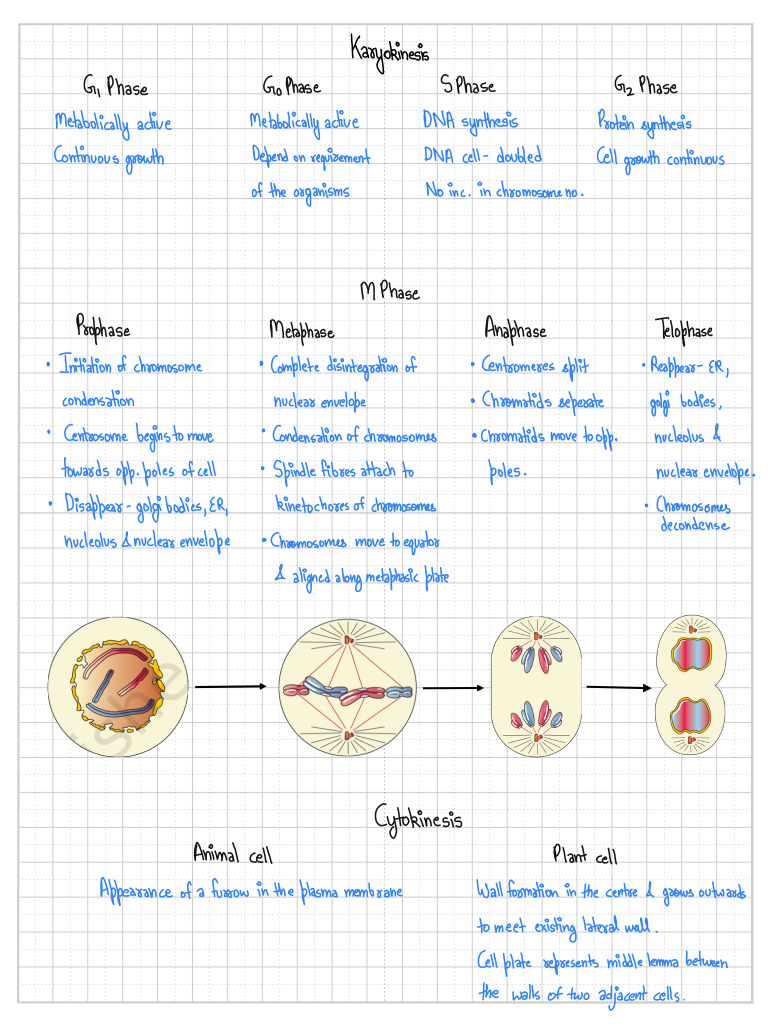 Karyokinesis
G1 Phase
Metabolically active
Continuous growth
G0 Phase
Metabolically active
Depend on requirement
of the organisms
S Phase
DNA synthesis
DNA cell - doubled
No inc. in chromosome no.
G2 Phase
Protein synthesis
Cell growth continuous
M Phase
Prophase
• Initiation of chromosome
condensation
• Centrosome begins to move
towards opp. poles of cell
• Disappear - golgi bodies, ER,
nucleolus & nuclear envelope
Metaphase
• Complete disintegration of
nuclear envelope
• Condensation of chromosomes
• Spindle fibres attach to
kinetochores of chromosomes
• Chromosomes move to equator
& aligned along metaphasic plate
Anaphase
• Centromeres split
• Chromatids seperate
• Chromatids move to opp.
poles.
Telophase
• Reappear - ER,
golgi bodies,
nucleolus &
nuclear envelope.
• Chromosomes
decondense
Cytokinesis
Animal cell
Appearance of a furrow in the plasma membrane
Plant cell
Wall formation in the centre & grows outwards
to meet existing lateral wall.
Cell plate represents middle lemma between
the walls of two adjacent cells.